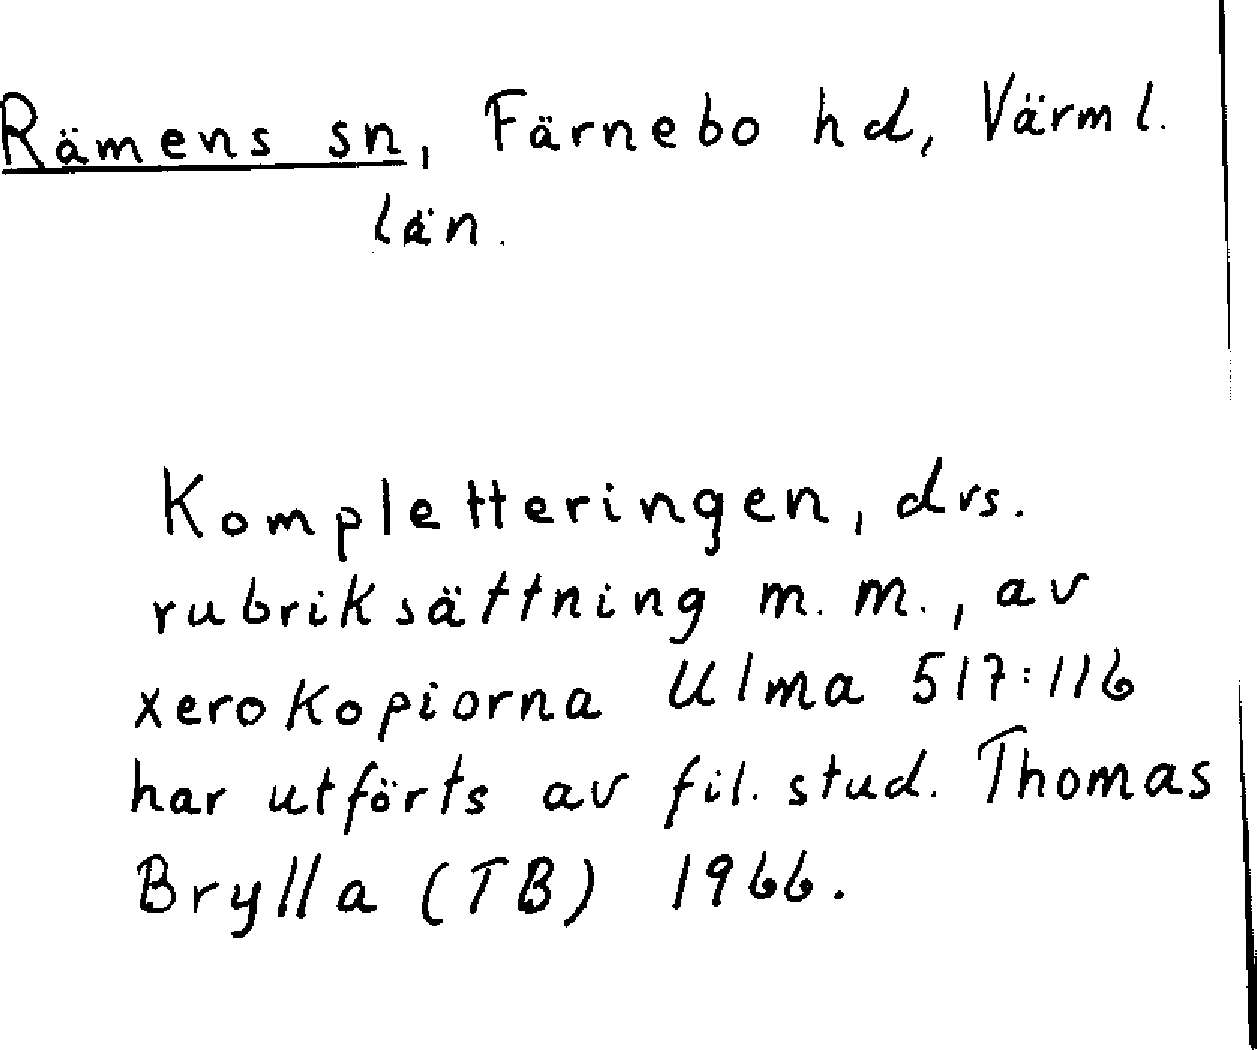 Rämens sn, Färnebo hd, Värml.
län.
Kompletteringen, dvs.
rubriksättning m.m., av
xerokopiorna Ulma 517:116
har utförts av fil. stud. Thomas
Brylla (TB) 1966.